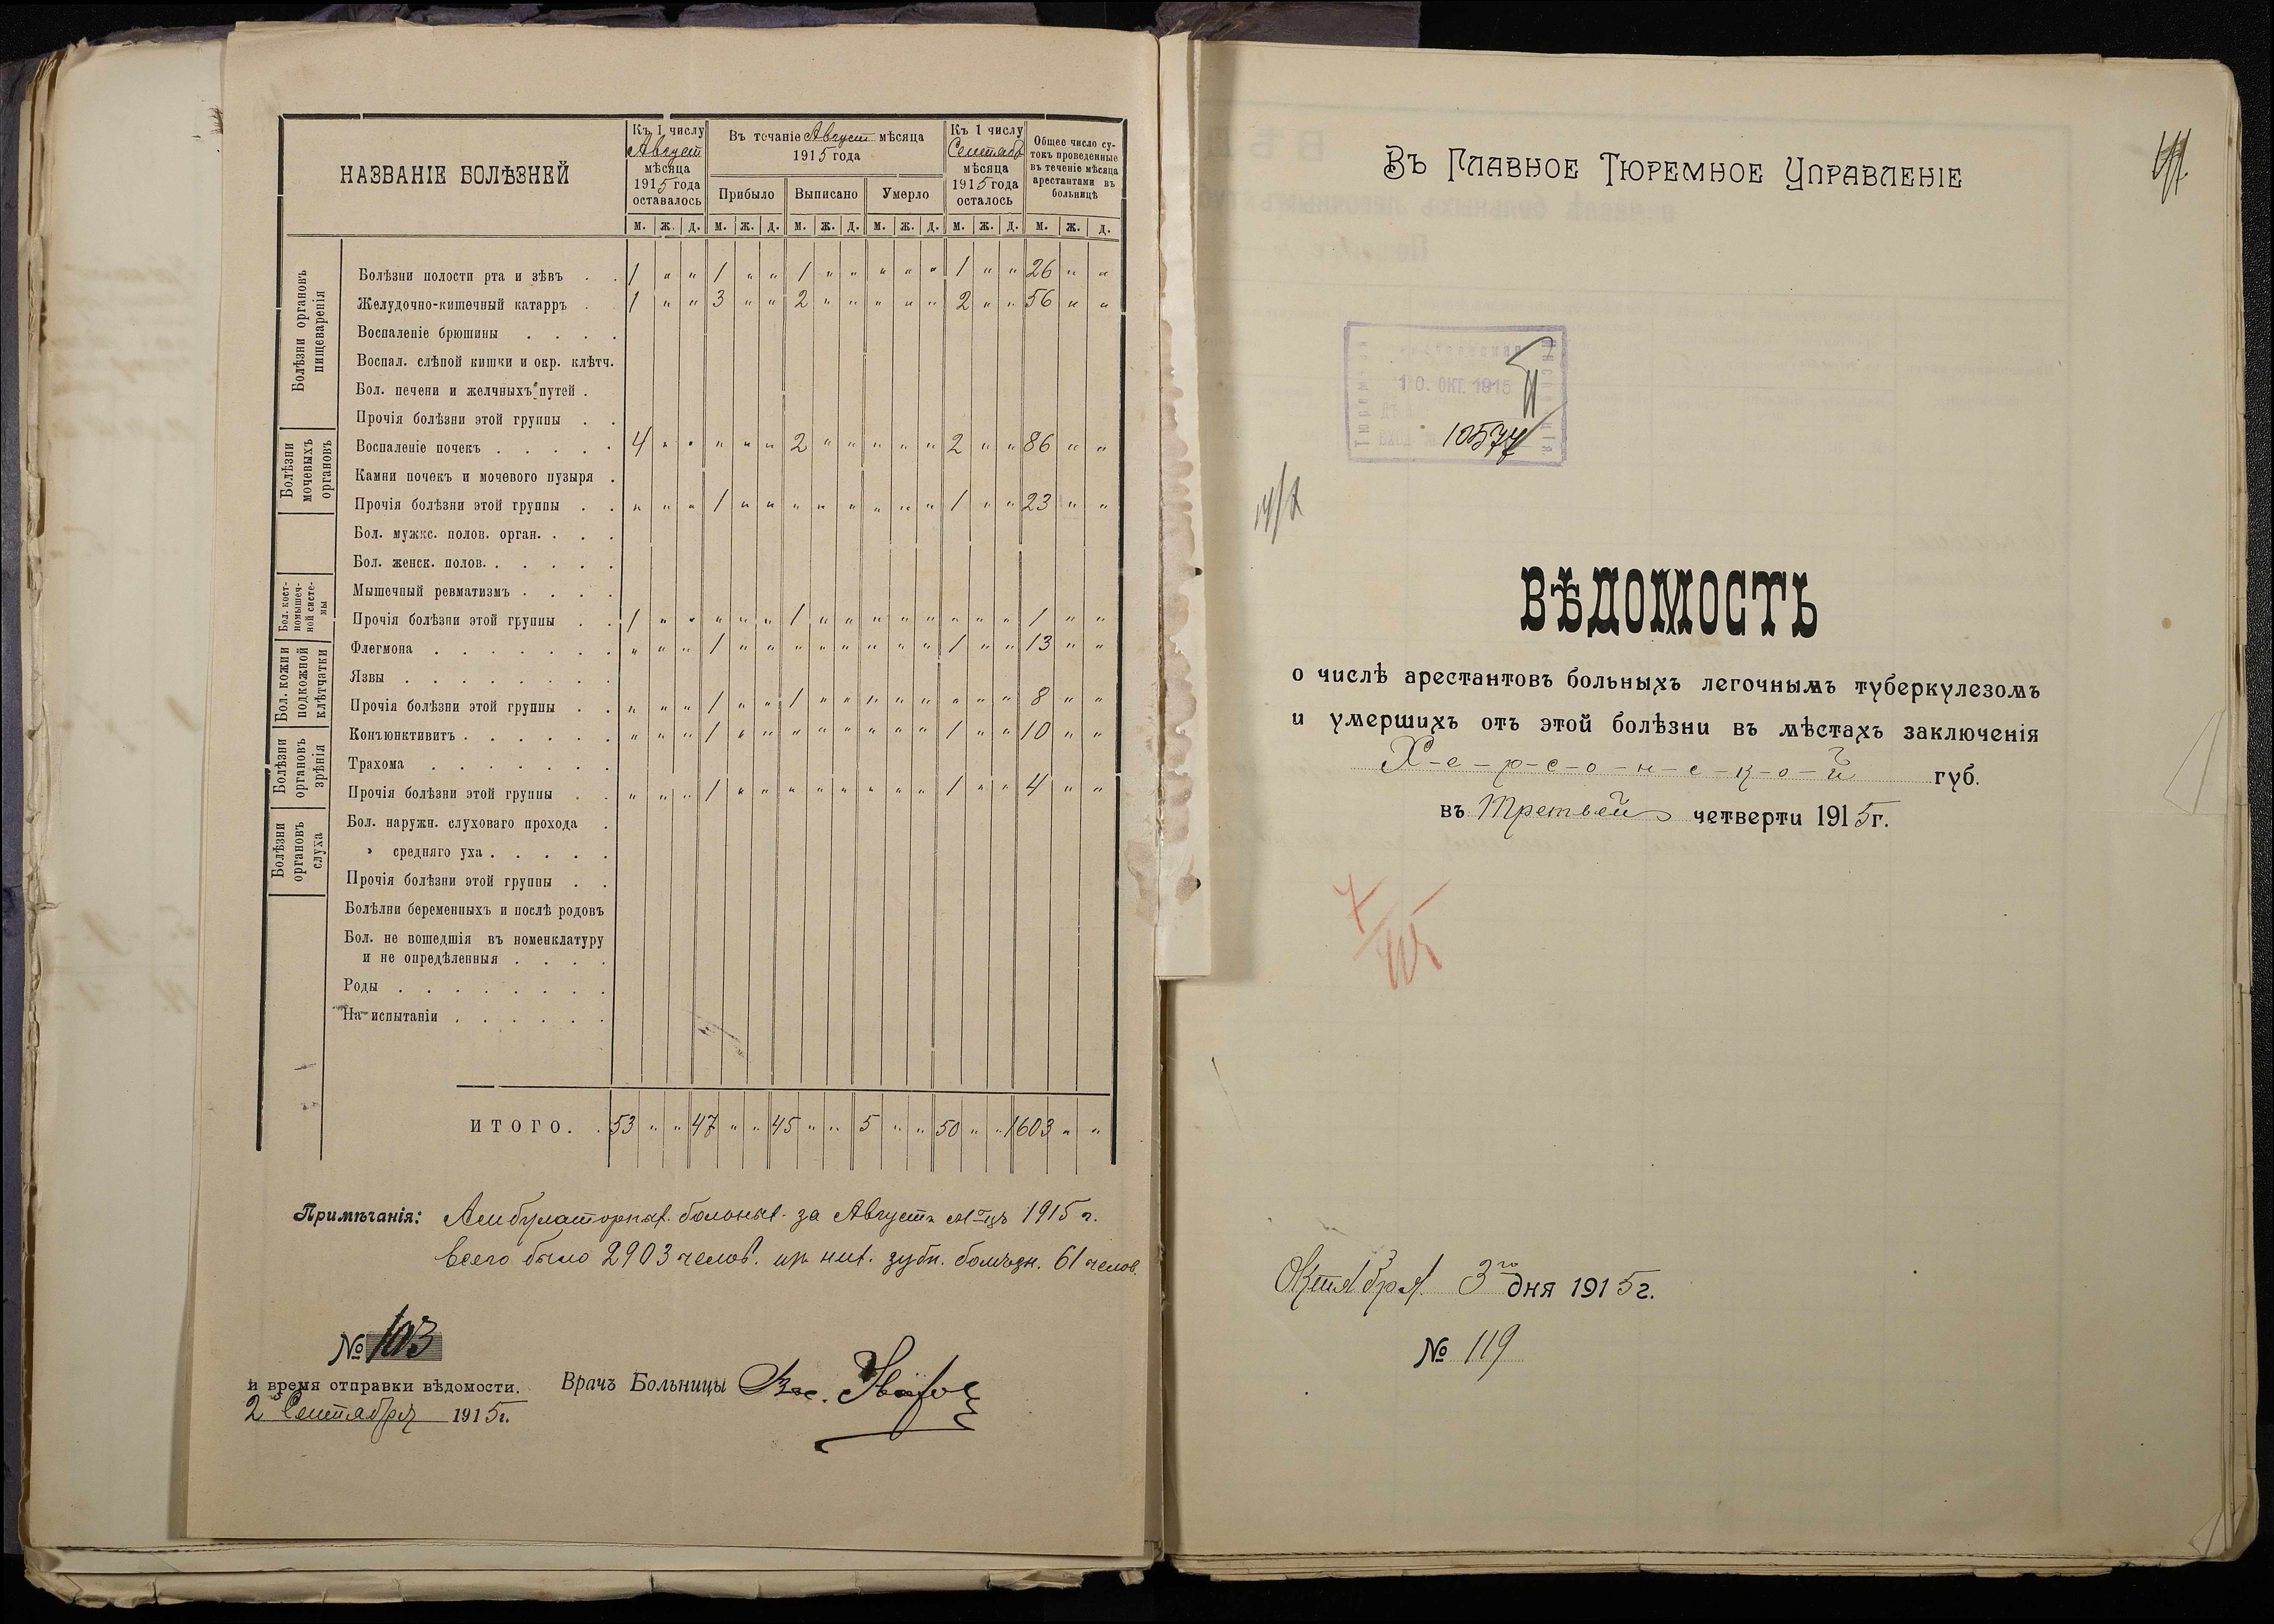 НАЗВАНІЕ БОЛѢЗНЕЙ
Къ 1 числу Август мѣсяца 1915 года оставалось
Въ теченіе Август мѣсяца 1915 года
Прибыло Выписано Умерло
Къ 1 числу мѣсяца 1915 года осталось
Общее число сутокъ проведенные въ теченіе мѣсяца арестантами въ больницѣ
м. ж. д. м. ж. д. м. ж. д. м. ж. д. м. ж. д. м. ж. д.
Болѣзни органовъ пищеваренія
Болѣзни полости рта и зѣвъ . . 1 " " 1 " " 1 " " " " " 1 " " 26 " "
Желудочно-кишечный катарръ . . 1 " " 3 " " 2 " " " " " 2 " " 56 " "
Воспаленіе брюшины . . . .
Воспал. слѣпой кишки и окр. клѣтч.
Бол. печени и желчныхъ путей .
Прочія болѣзни этой группы . .
Болѣзни мочевыхъ органовъ
Воспаленіе почекъ . . . . . 4 " " " " " 2 " " " " " 2 " " 86 " "
Камни почекъ и мочевого пузыря .
Прочія болѣзни этой группы . . " " " 1 " " " " " " " " 1 " " 23 " "
Бол. мужс. полов. орган. . . .
Бол. женск. полов. . . . . .
Бол. костномышечной системы
Мышечный ревматизмъ . . . .
Прочія болѣзни этой группы . . 1 " " " " " 1 " " " " " " " " 1 " "
Бол. кожи и подкожной клѣтчатки
Флегмона . . . . . . . " " " 1 " " " " " " " " 1 " " 13 " "
Язвы . . . . . . . .
Прочія болѣзни этой группы . . " " " 1 " " 1 " " " " " " " " 8 " "
Болѣзни органовъ зрѣнія
Конъюнктивитъ . . . . . . " " " 1 " " " " " " " " 1 " " 10 " "
Трахома . . . . . . .
Прочія болѣзни этой группы . . " " " 1 " " " " " " " " 1 " " 4 " "
Болѣзни органовъ слуха
Бол. наружн. слуховаго прохода .
" средняго уха . . . . .
Прочія болѣзни этой группы . .
Болѣлни беременныхъ и послѣ родовъ
Бол. не вошедшія въ номенклатуру
и не опредѣленныя . . . .
Роды . . . . . . . .
На испытаніи . . . . . .
ИТОГО. . 53 " " 47 " " 45 " " 5 " " 50 " " 1603 " "
Примѣчанія: Амбулаторных. больных. за Августъ м-цъ 1915 г.
всего было 2903 челов. из них. зубн. болѣзн. 61 челов.
№ 103
и время отправки вѣдомости.
2 Сентября 1915г.
Врачъ Больницы
Въ Главное Тюремное Управленіе
10. ОКТ. 1915
10577
ВѢДОМОСТЬ
о числѣ арестантовъ больныхъ легочнымъ туберкулезомъ
и умершихъ отъ этой болѣзни въ мѣстахъ заключенія
Х-е-р-с-о-н-с-к-о-й губ.
въ Третьей четверти 1915г.
Октября 3го дня 1915г.
№ 119